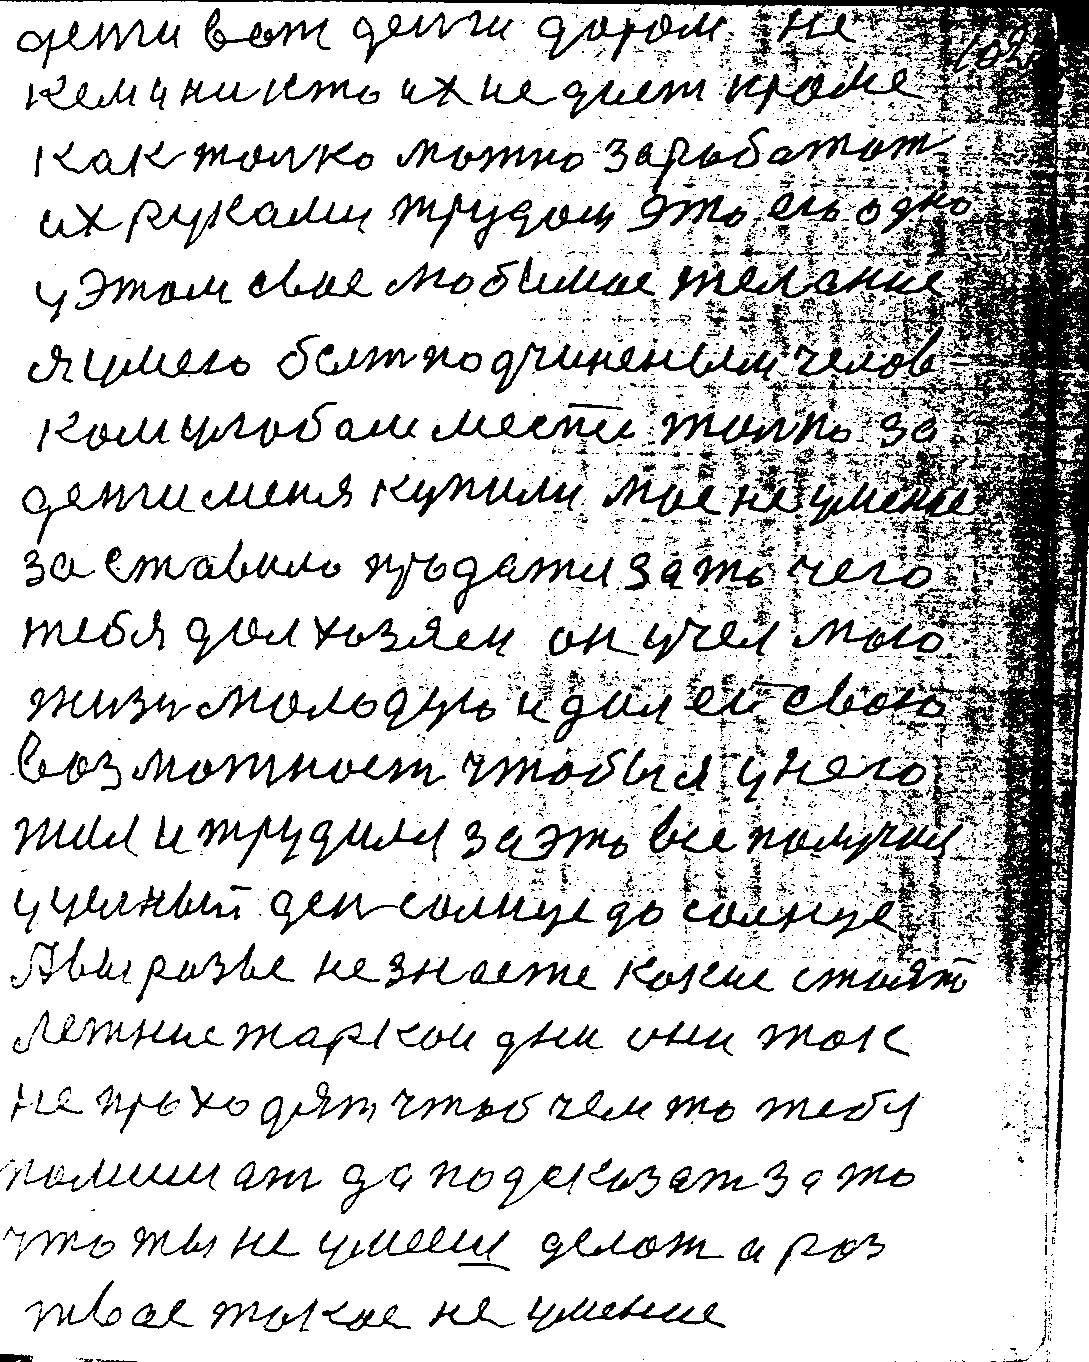 102
денги вот денги даром не
кем и никто их не дает кроме
как толко можно заработат
их руками трудом это его одно
у этом свое мобимое желание
я умею бытподчиненым челов-
ком улюбом месте толко за
денги меня купили мое не умение
заставило продатся за то чего
тебя дал хозяен он учел мою
жизн молодую и дал ей свою
возможност чтобы я у него
жил и трудился за это все получал
у целный ден солнце до солнце
А вы розве не знаете какие стоят
летние жаркои дни они так
не проходят чтоб чем то тебя
помишат да подсказат за то
что ты не умееш делат а раз
твое такое не умение